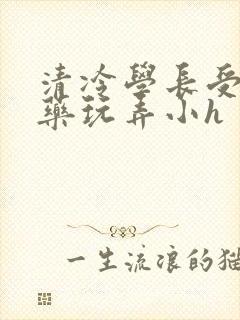 清冷學長受
藥玩弄小h
一生流浪的貓